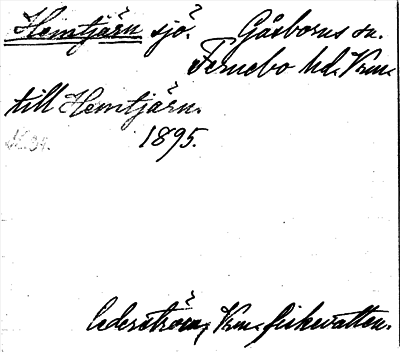 Hemtjärn sjö. Gåsborns sn.
Fernebo hd. Vrm.
till Hemtjärn.
1895.
Cederström, Vrm. fiskevatten.